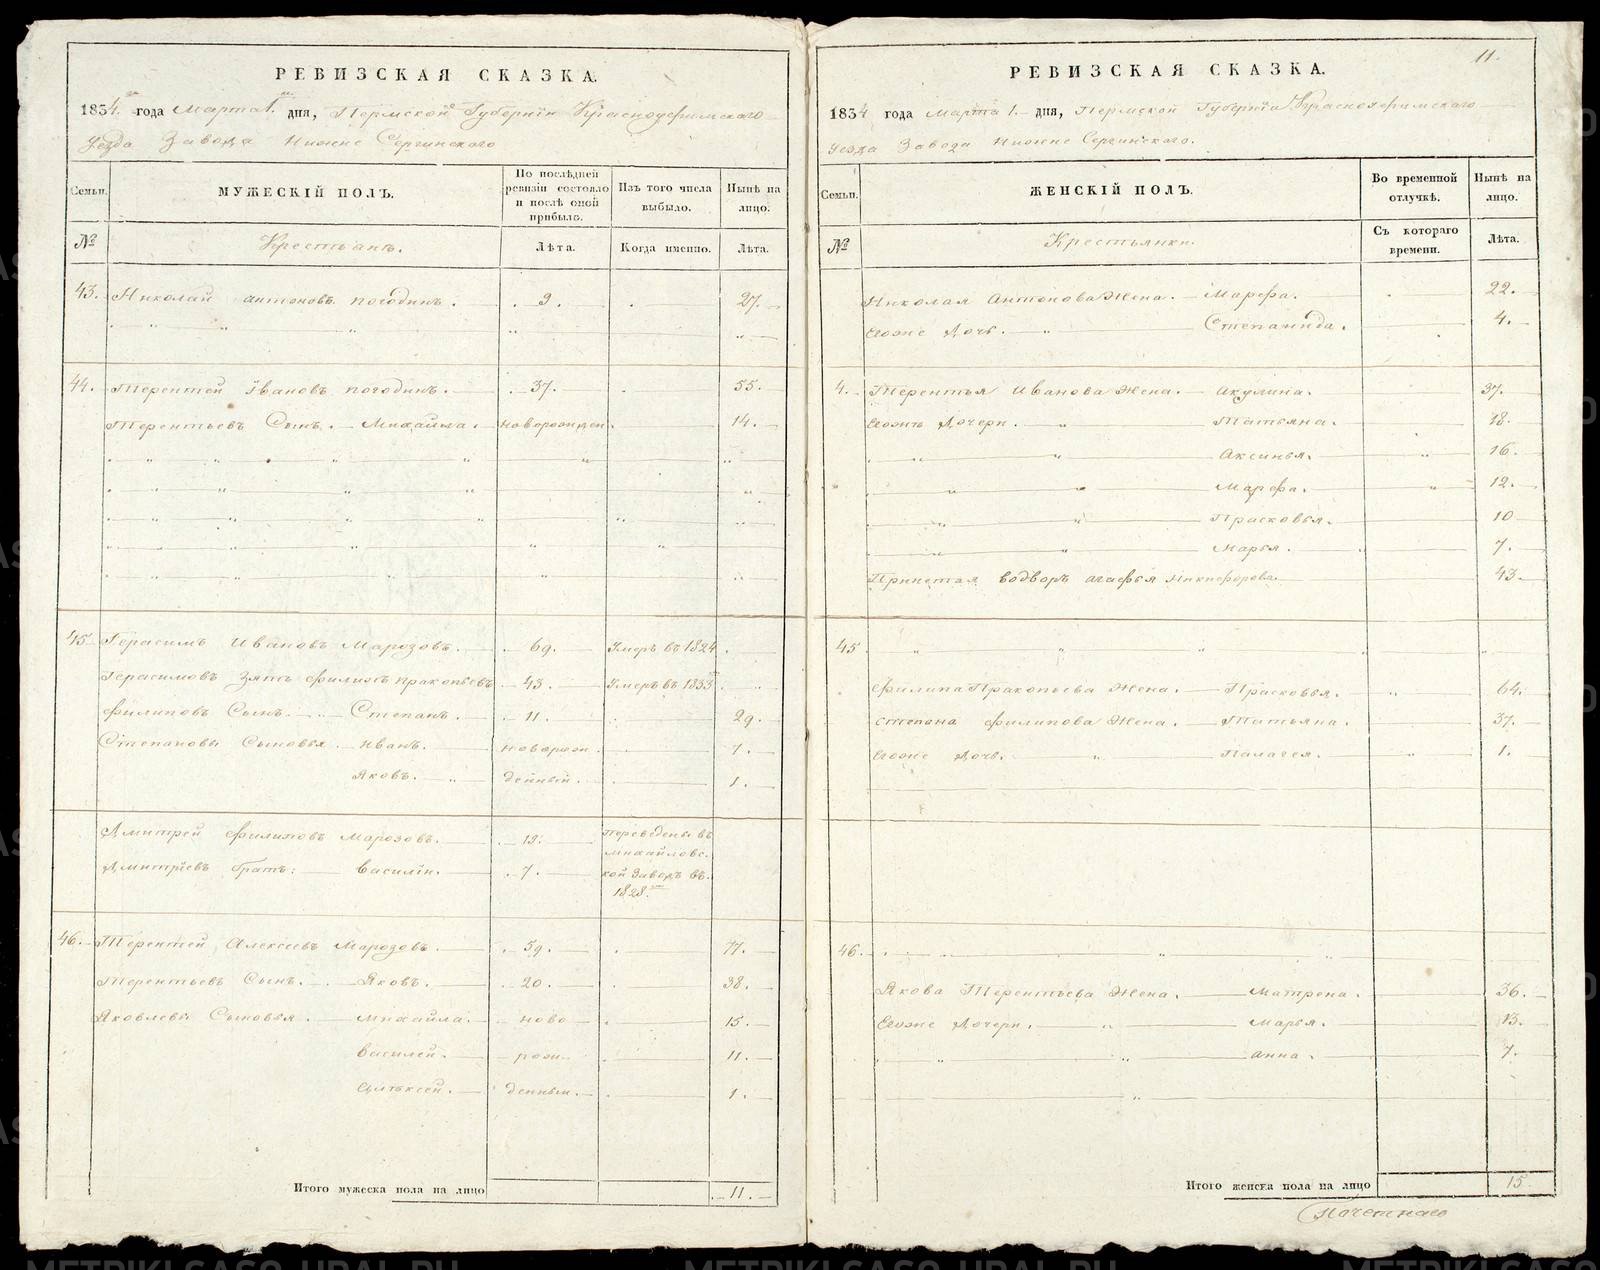 РЕВИЗСКАЯ СКАЗКА.
1834 года Марта 1. дня, Пермской Губернїи Красноуфимского
Уезда Завода Нижне Сергинского
Семьи.
МУЖЕСКІЙ ПОЛЪ.
По послѣдней ревизіи состояло и послѣ оной прибыло.
Изъ того числа выбыло.
Нынѣ на лицо.
№
Крестьянъ.
Лѣта.
Когда именно.
Лѣта.
43. Николай антоновъ погодинъ. 9. 27.
44. Терентей Ївановъ погодинъ. 37. 55.
Терентьевъ Сынъ. Михайла. новорожден 14.
45 Герасимъ Ивановъ Марозовъ. 69. Умеръ въ 1824
Герасимовъ Зять Филипъ пракопьевъ 43. Умеръ въ 1833
Филиповъ Сынъ. Степанъ. 11. 29.
Степановы Сыновья. иванъ. новорож 7.
Яковъ. денный. 1.
Дмитрей Филиповъ Марозовъ. 12. Переведены въ
михайловс.
Дмитрїевъ братъ: василїи. 7. кой Заводъ въ
1828.
46. Терентей Алексиевъ Марозовъ. 59. 77.
Терентьевъ Сынъ. Яковъ. 20. 38.
Яковлевы Сыновья. михайла. ново 15.
василей. рож 11.
алѣксей. денный. 1.
Итого мужеска пола на лицо 11.
11.
РЕВИЗСКАЯ СКАЗКА.
1834 года Марта 1. дня, Пермской Губернїи Красноуфимского
уезда Завода Нижне Сергинского.
Семьи.
ЖЕНСКІЙ ПОЛЪ.
Во временной отлучкѣ.
Нынѣ на лицо.
№
Крестьянки.
Съ котораго времени.
Лѣта.
Николая Антонова Жена. Марефа. 22.
Егоже Дочь. Степанида. 4.
4. Терентья Иванова Жена. Акулина. 37.
Егожъ Дочери. Татьяна. 18.
Аксинья. 16.
Марефа. 12.
Прасковья. 10
Марья. 7.
Принетая водворъ агафья Никифорова. 43.
45
Филипа Пракопьева Жена. Прасковья. 64.
степана филипова Жена. Татьяна. 37.
Егоже Дочь. Палагея. 1.
46.
Якова Терентьева Жена. Матрена. 36.
Егоже Дочери. Марья. 13.
анна. 7.
Итого женска пола на лицо 15